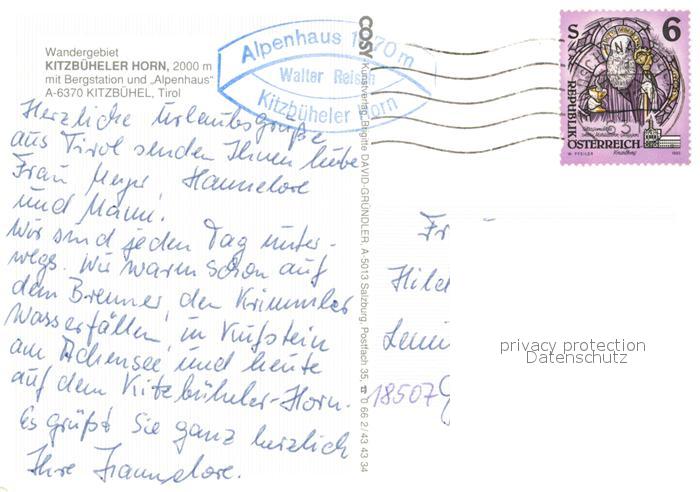 Wandergebiet
KITZBÜHELER HORN, 2000 m
mit Bergstation und „Alpenhaus“
A-6370 KITZBÜHEL, Tirol
Alpenhaus 1670 m
Walter Reisch
Kitzbüheler Horn
Herzliche Urlaubsgrüße
aus Tirol senden Ihnen liebe
Frau Meyer, Hannelore
und Manni.
Wir sind jeden Tag unter-
wegs. Wir waren schon auf
dem Brenner, den Krimmler
Wasserfällen, in Kufstein
am Achensee und heute
auf dem Kitzbüheler-Horn.
Es grüßt Sie ganz herzlich
Ihre Hannelore.
COSY - Kunstverlag, Brigitte DAVID-GRÜNDLER, A-5013 Salzburg, Postfach 35, ☎ 0 66 2/43 43 34
S 6
REPUBLIK
ÖSTERREICH
Fr
Hild
18507
privacy protection
Datenschutz